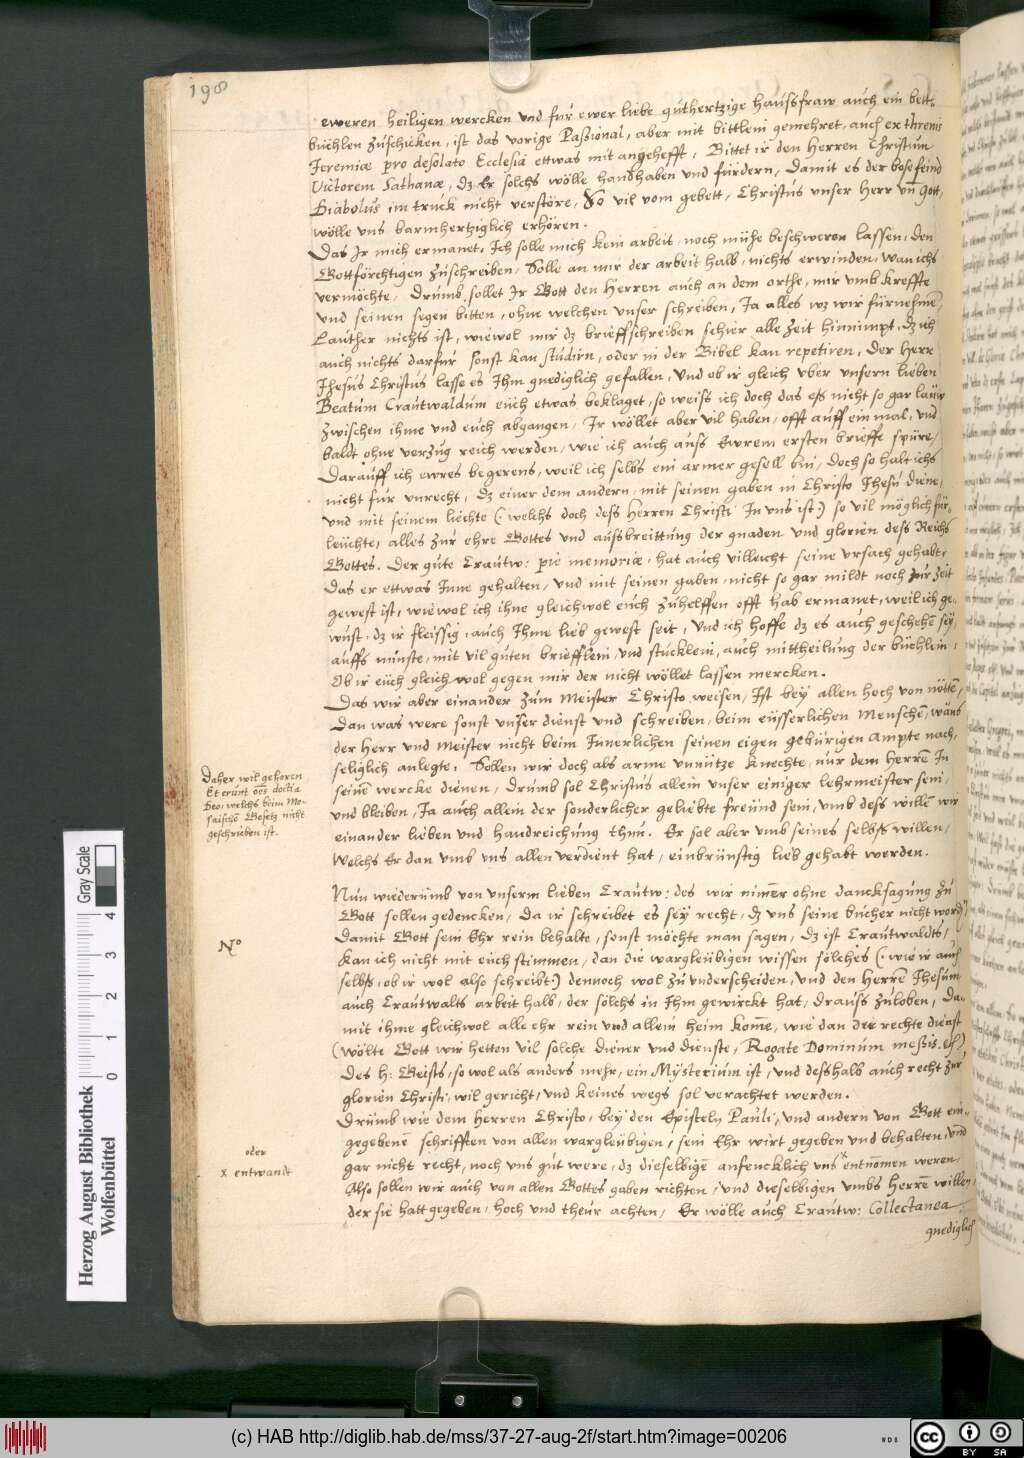 198
eweren heiligen wercken vnd für ewer liebe guthertzige haussfraw auch ein bett-
büchlen zuschicken, ist das vorige Passional, aber mit bittlein gemehret, auch ex threnis
Jeremiæ pro desolato Ecclesia ettwas mit angehefft, Bittet ir den Herren Christum
Victorem Sathanæ, dz Er solchs wölle handhaben vnd fürdern, Damit es der bose feind
Diabolus im truck nicht verstöre, So vil vom gebett, Christus vnser Herr vn̄ Gott,
wölle vns barmhertziglich erhören.
Das Ir mich ermanet, Ich solle mich kein arbeit noch mühe beschweren lassen, den
Gottförchtigen zuschreiben, Solle an mir der arbeit halb, nichts erwinden, wan ichs
vermöchte, Drumb sollet Ir Gott den Herren auch an dem orthe, mir vmb kreffte
vnd seinen segen bitten, ohne welchen vnser schreiben, Ja alles wz wir fürnehmē,
Lauther nichts ist, wiewol mir dz brieffschreiben schier alle zeit hinnimpt, dz ich
auch nichts darfür sonst kan studirn, oder in der Bibel kan repetiren, Der Herr
Jhesus Christus lasse es Ihm gnediglich gefallen, Vnd ob ir gleich vber vnsern lieben
Beatum Crautwaldum euch etwas beklaget, so weiss ich doch das eß nicht so gar lauter
zwischen ihme vnd euch abgangen, Ir wöllet aber vil haben, offt auff ein mal, vnd
baldt ohne verzug reich werden, wie ich auch auss Ewrem ersten brieffe spüre,
Darauff ich ewres begerens, weil ich selbs ein armer gesell bin, Doch so halt ichs
nicht für vnrecht, dz einer dem andern, mit seinen gaben in Christo Jhesu diene,
vnd mit seinem liechte (: welchs doch dess Herren Christi In vns ist :) so vil möglich für-
leuchte, alles zur ehre Gottes vnd aussbreittung der gnaden vnd glorien dess Reichs
Gottes. Der gute Crautw: piæ memoriæ, hat auch villeicht seine vrsach gehabt,
Das er ettwas Inne gehalten, vnd mit seinen gaben, nicht so gar mildt noch zur zeit
gewest ist, wiewol ich ihne gleichwol euch zuhelffen offt hab ermanet, weil ich ge-
wust, dz ir fleissig, auch Ihme lieb gewest seit, Vnd ich hoffe dz es auch geschehē sey,
auffs minste, mit vil guten briefflein, vnd stücklein, auch mittheilung der büchlein,
Ob ir euch gleich wol gegen mir der nicht wöllet lassen mercken.
Das wir aber einander zum Meister Christo weisen, Ist bey allen hoch von nöttē,
Dan was were sonst vnser dienst vnd schreiben, beim eüsserlichen Menschē, wans
der Herr vnd Meister nicht beim Innerlichen seinen eigen gebürigen Ampte nach,
seliglich anlegte, Sollen wir doch als arme vnnütze knechte, nur dem Herrē In
seinē wercke dienen, Drumb sol Christus allein vnser einiger lehrmeister sein,
vnd bleiben, Ja auch allein der sonderlicher geliebte freünd sein, vmb dess willē wir
einander lieben vnd handreichung thun. Er sol aber vmb seines selbß willen,
Welchs Er dan vmb vns allen verdient hat, einbrünstig lieb gehabt werden.
Daher wil gehören
Et erunt oēs docti a
Deo: welchs beim Mo-
saischē Gesetz nicht
geschrieben ist.
Nun wiederumb von vnserm lieben Crautw: des wir nimer ohne dancksagung zu
Gott sollen gedencken, Da ir schreibet es sey recht, dz vns seine bücher nicht wordē,
damit Gott sein Ehr rein behalte, sonst möchte man sagen, dz ist Crautwaldts,
Nº
Kan ich nicht mit euch stimmen, dan die wargleubigen wissen solches (: wie ir auch
selbß, ob ir wol also schreibt :) dennoch wol zu vnderscheiden, Vnd den Herrē Jhesum
auch Crautwalts arbeit halb, der solchs in Ihm gewirckt hat, drauss zuloben, Da-
mit ihme gleichwol alle ehr rein vnd allein heim kome, wie dan der rechte dienst
(wölte Gott wir hetten vil solche diener vnd dienste, Rogate Dominum messis. &c)
Des h: Geists, so wol als anders mehr, ein Mysterium ist, vnd desshalb auch recht zur
glorien Christi, wil gericht, vnd keines wegs sol verachtet werden.
Drumb wie dem Herren Christo, bey den Episteln Pauli, vnd andern von Gott ein-
gegebenē schrifften von allen wargleubigen, sein Ehr wirt gegeben vnd behalten, vnd
gar nicht recht, noch vns gut were, dz dieselbigē anfencklich vns x entnommen weren,
oder
x entwandt
Also sollen wir auch von allen Gottes gaben richten, vnd dieselbigen vmbs Herrē willen,
der sie hatt gegeben, hoch vnd theur achten, Er wölle auch Crautw: Collectanea
gnediglich
Herzog August Bibliothek
Wolfenbüttel
0 1 2 3 4
Gray Scale
(c) HAB http://diglib.hab.de/mss/37-27-aug-2f/start.htm?image=00206
WDB
cc BY SA